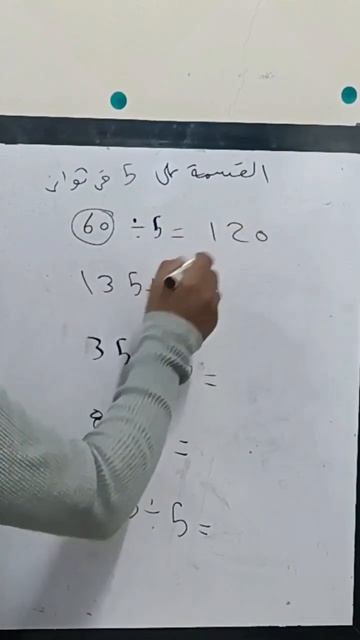 القسمة على 5 في ثوان
60 ÷ 5 = 120
135
35 =
=
÷ 5 =